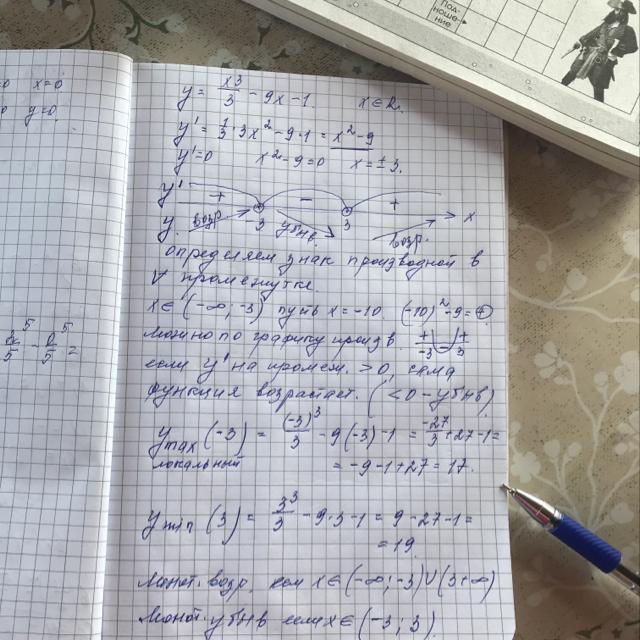 Под-
ноше-
ние
x=0
y=0
y = x³/3 - 9x - 1 x∈R.
y' = 1/3 · 3x² - 9·1 = x² - 9
y' = 0 x² - 9 = 0 x = ±3.
y' + - +
-3 3 x
y возр. убыв. возр.
определяем знак производной в
∀ промежутке
x∈(-∞; -3) пусть x = -10 (-10)² - 9 = +
можно по графику произв. + - + -3 3
если y' на промеж. > 0, сама
функция возрастает. (< 0 - убыв)
y max (-3) = (-3)³/3 - 9(-3) - 1 = -27/3 + 27 - 1 =
локальный = -9 - 1 + 27 = 17.
y min (3) = 3³/3 - 9·3 - 1 = 9 - 27 - 1 =
= 19
монот. возр. если x∈(-∞; -3)∪(3 +∞)
монот. убыв если x∈(-3; 3)